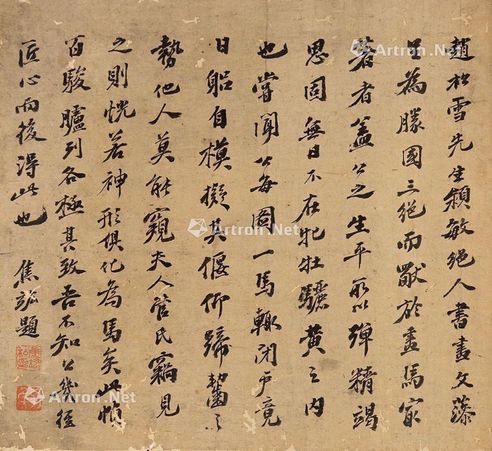 趙松雪先生穎敏絕人書畫文藻
足為勝國三絕而於畫馬最
著者蓋公之生平所以殫精竭
思固無日不在牝牡驪黃之內
也嘗聞公每圖一馬輒閉戶竟
日躬自模擬其偃仰蹄齧之
勢他人莫能窺夫人管氏竊見
之則恍若神形俱化為馬矣此幀
百駿臚列各極其致吾不知公幾經
匠心而後得此也 焦竑題
Artron.Net
Artron.Net
Artron.Net
Artron.Net
Artron.Net